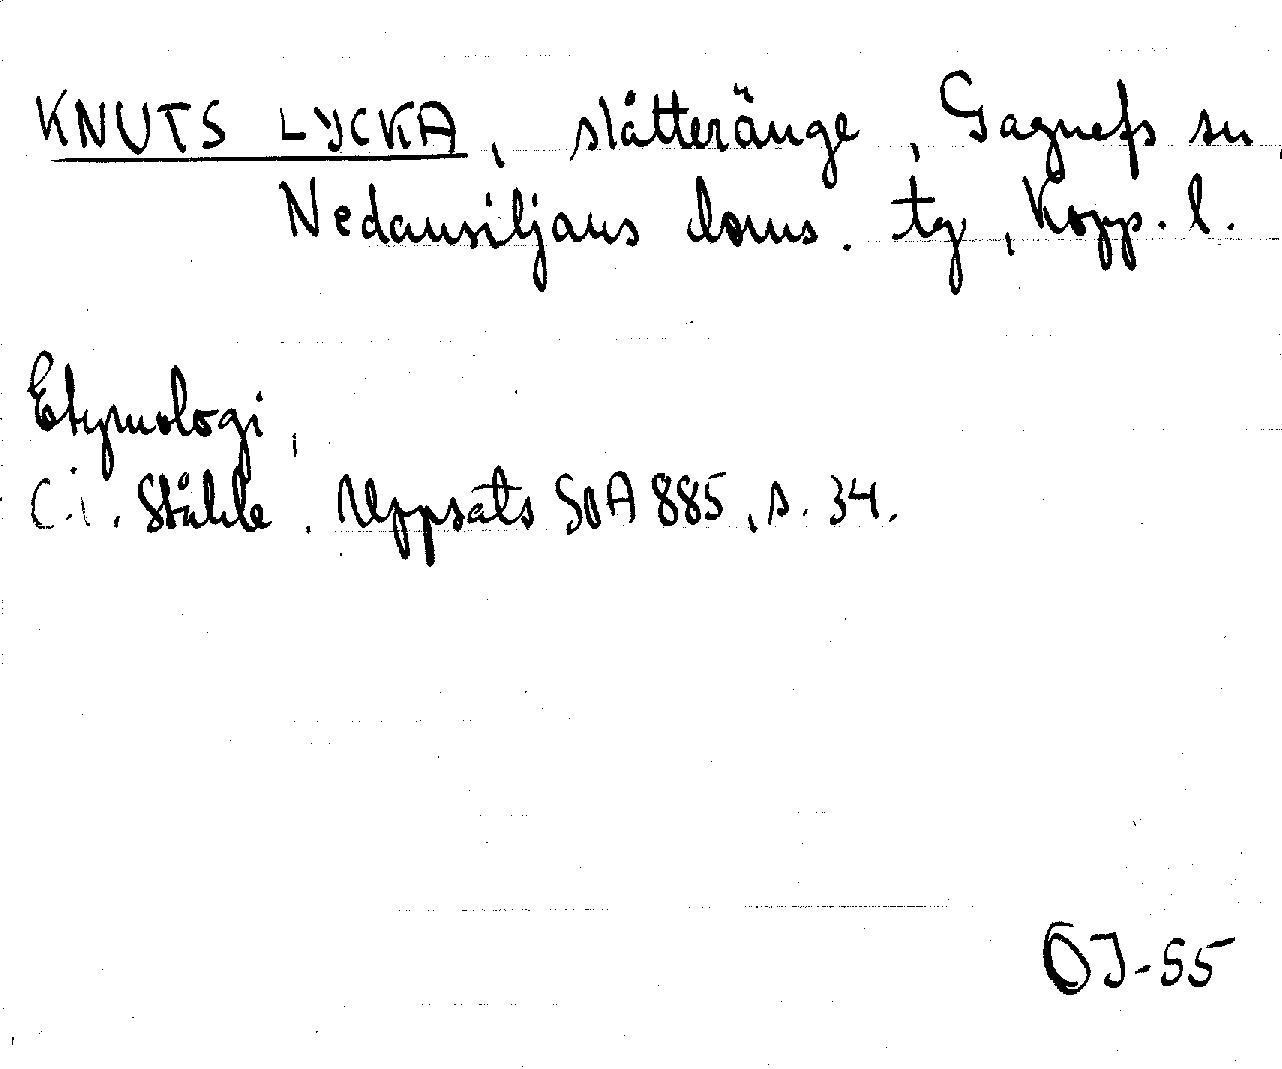 KNUTS LYCKA, slåtteränge, Gagnefs sn,
Nedansiljans doms. tg, Kopp. l.
Etymologi,
C.i. Ståhle. Uppsats SOA 885, s. 34.
OJ-55